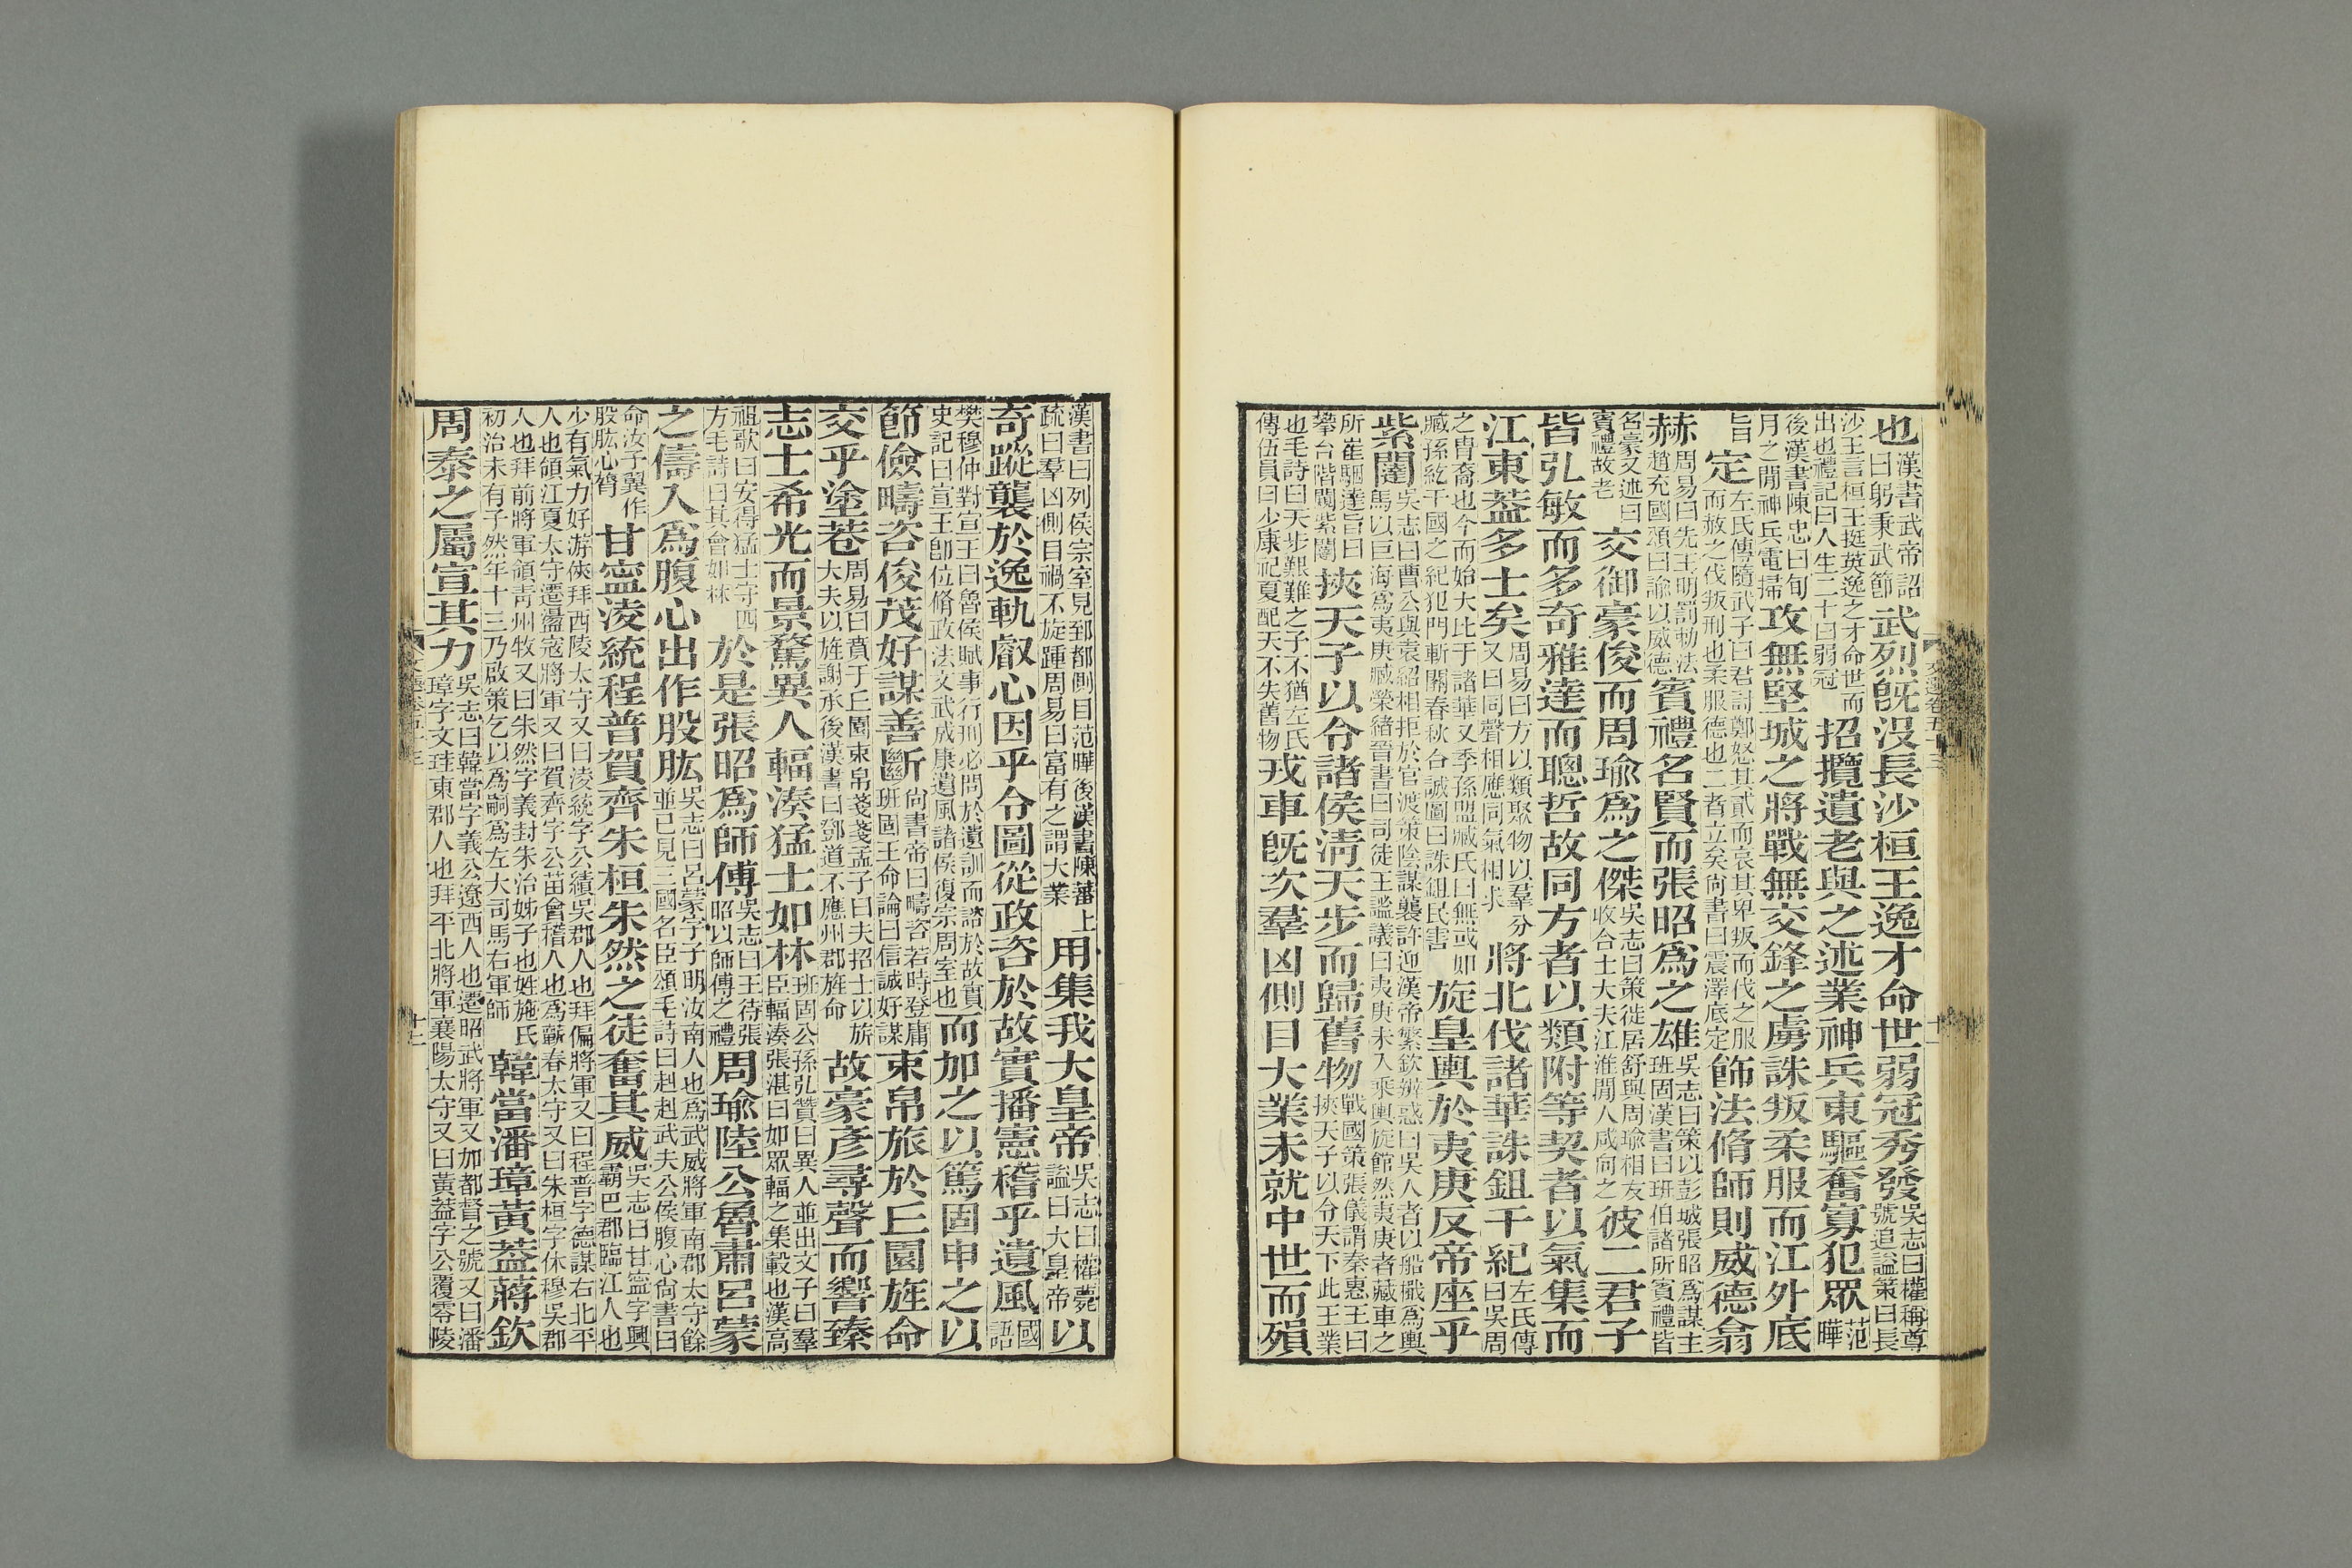 也漢書武帝詔曰躬秉武節武烈旣没長沙桓王逸才命世弱冠秀發吳志曰權稱尊號追謚策曰長
沙王言桓王挺英逸之才命世而出也禮記曰人生二十曰弱冠招攬遺老與之述業神兵東驅奮寡犯眾范曄
後漢書陳忠曰旬月之閒神兵電掃攻無堅城之將戰無交鋒之虜誅叛柔服而江外底
旨定左氏傳隨武子曰君討鄭怒其貳而哀其卑叛而伐之服而赦之伐叛刑也柔服德也二者立矣尚書曰震澤底定飾法脩師則威德翕
赫周易曰先王明罰勅法趙充國頌曰諭以威德賓禮名賢而張昭爲之雄吳志曰策以彭城張昭爲謀主班固漢書曰班伯諸所賓禮皆
名豪又述曰賓禮故老交御豪俊而周瑜爲之傑吳志曰策徙居舒與周瑜相友收合士大夫江淮閒人咸向之彼二君子
皆弘敏而多奇雅達而聰哲故同方者以類附等契者以氣集而
江東蓋多士矣周易曰方以類聚物以羣分又曰同聲相應同氣相求將北伐諸華誅鉏干紀左氏傳曰吳周
之冑裔也今而始大比于諸華又季孫盟臧氏曰無或如臧孫紇干國之紀犯門斬關春秋合誠圖曰誅鉏民害旋皇輿於夷庚反帝座乎
紫闥吳志曰曹公與袁紹相拒於官渡策陰謀襲許迎漢帝繁欽辨惑曰吳人者以船檝爲輿馬以巨海爲夷庚臧榮緒晉書曰司徒王謐議曰夷庚未入乘輿旋館然夷庚者藏車之
所崔駰達旨曰攀台階闚紫闥挾天子以令諸侯淸天步而歸舊物戰國策張儀謂秦惠王曰挾天子以令天下此王業
也毛詩曰天步艱難之子不猶左氏傳伍員曰少康祀夏配天不失舊物戎車旣次羣凶側目大業未就中世而殞
漢書曰列侯宗室見郅都側目范曄後漢書陳蕃上疏曰羣凶側目禍不旋踵周易曰富有之謂大業用集我大皇帝吳志曰權薨謚曰大皇帝以
奇蹤襲於逸軌叡心因乎令圖從政咨於故實播憲稽乎遺風國語
樊穆仲對宣王曰魯侯賦事行刑必問於遺訓而諮於故實史記曰宣王卽位脩政法文武成康遺風諸侯復宗周室也而加之以篤固申之以
節儉疇咨俊茂好謀善斷尚書帝曰疇咨若時登庸班固王命論曰信誠好謀束帛旅於丘園旌命
交乎塗巷周易曰賁于丘園束帛戔戔孟子曰夫招士以旂大夫以旌謝承後漢書曰鄧道不應州郡旌命故豪彦尋聲而響臻
志士希光而景騖異人輻湊猛士如林班固公孫弘贊曰異人並出文子曰羣臣輻湊張湛曰如眾輻之集轂也漢高
祖歌曰安得猛士守四方毛詩曰其會如林於是張昭爲師傅吳志曰王待張昭以師傅之禮周瑜陸公魯肅呂蒙
之儔入爲腹心出作股肱吳志曰呂蒙字子明汝南人也爲武威將軍南郡太守餘並已見三國名臣頌毛詩曰赳赳武夫公侯腹心尚書曰
命汝予翼作股肱心膂甘寧淩統程普賀齊朱桓朱然之徒奮其威吳志曰甘寧字興霸巴郡臨江人也
少有氣力好游俠拜西陵太守又曰淩統字公績吳郡人也拜偏將軍又曰程普字德謀右北平人也領江夏太守遷盪寇將軍又曰賀齊字公苗會稽人也爲蘄春太守又曰朱桓字休穆吳郡
人也拜前將軍領靑州牧又曰朱然字義封朱治姊子也姓施氏初治未有子然年十三乃啟策乞以爲嗣爲左大司馬右軍師韓當潘璋黃蓋蔣欽
周泰之屬宣其力吳志曰韓當字義公遼西人也遷昭武將軍又加都督之號又曰潘璋字文珪東郡人也拜平北將軍襄陽太守又曰黃蓋字公覆零陵